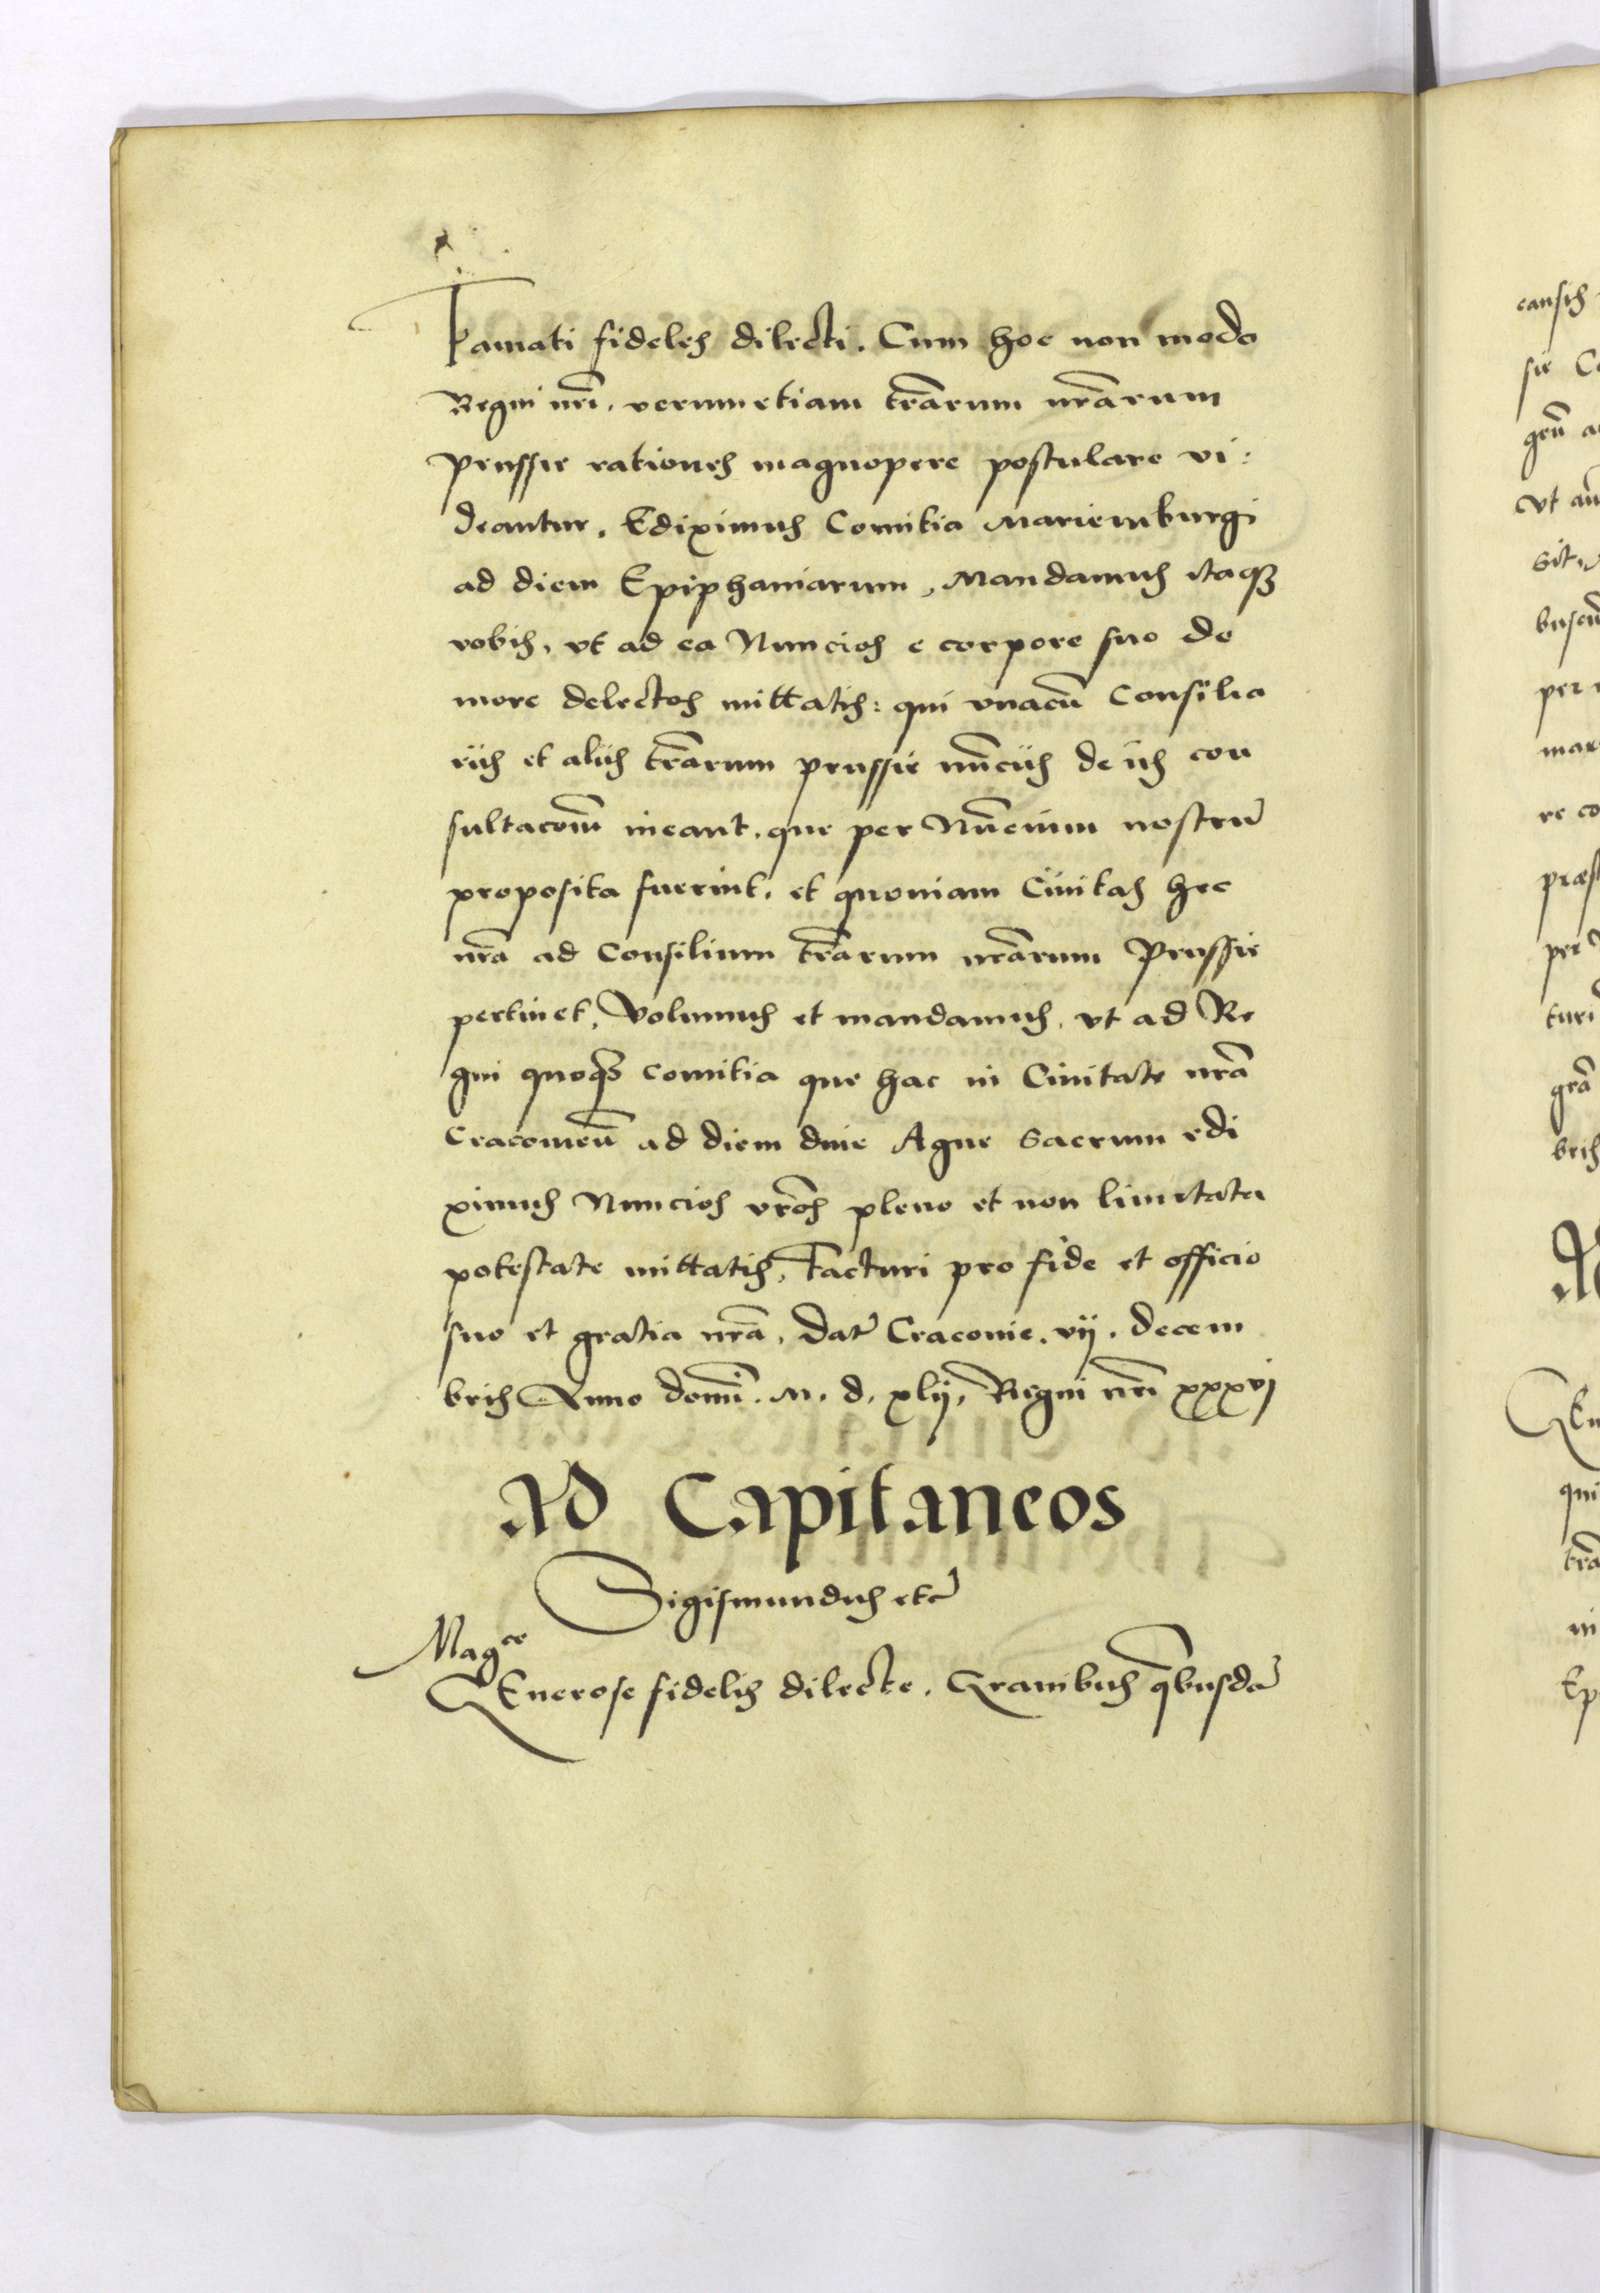 Famati fideles dilecti. Cum hoc non modo
Regni nr̃i, verumetiam tr̃arum nr̃arum
prussie rationes magnopere postulare vi:
deantur, Ediximus Comitia Mariemburgi
ad diem Epiphaniarum, Mandamus itaqȝ
vobis, vt ad ea Nuncios e corpore suo de
more delectos mittatis: qui vnacũ Consilia
riis et aliis tr̃arum prussie nũciis de iis con
sultacõm ineant, que per Nũcium nostrũ
proposita fuerint, et quoniam Civitas hec
nr̃a ad Consilium tr̃arum nr̃arum Prussie
pertinet, Volumus et mandamus, vt ad Re
gni quoqȝ comitia que hac in Civitate nr̃a
Cracovieñ ad diem dive Agne sacrum edi
ximus Nuncios vr̃os pleno et non limitata
potestate mittatis, Facturi pro fide et officio
suo et gratia nr̃a, Dat̃ Cracovie. vij. decem
bris Anno domĩ. M. d. xlij, Regni nr̃i xxxvj
Ad Capitaneos
Sigismundus etc̃
Mag^ce
GEnerose fidelis dilecte. Gravibus q̃busdã
causis
sie
gnũ
Vt
sit,
buscũ
per
re co
per
turi
gr̃a
bris
qui
tr̃a
in
Ep